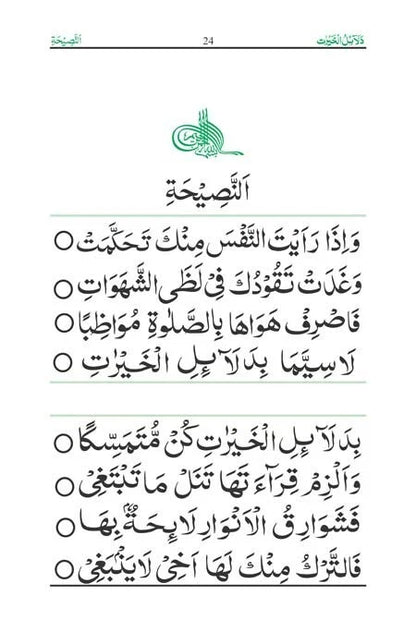 دَلَآئِلُ الْخَيْرٰت 24 اَلنَّصِيْحَةِ
اَلنَّصِيْحَةِ
وَاِذَا رَاَيْتَ النَّفْسَ مِنْكَ تَحَكَّمَتْ ○
وَغَدَتْ تَقُوْدُكَ فِيْ لَظَى الشَّهَوَاتِ ○
فَاصْرِفْ هَوَاهَا بِالصَّلٰوةِ مُوَاظِبًا ○
لَاسِيَّمَا بِدَلَآئِلِ الْخَيْرٰتِ ○
بِدَلَآئِلِ الْخَيْرٰتِ كُنْ مُّتَمَسِّكًا ○
وَالْزِمْ قِرَآءَتَهَا تَنَلْ مَا تَبْتَغِيْ ○
فَشَوَارِقُ الْاَنْوَارِ لَائِحَةٌۢ بِهَا ○
فَالتَّرْكُ مِنْكَ لَهَا اَخِيْ لَايَنْۢبَغِيْ ○